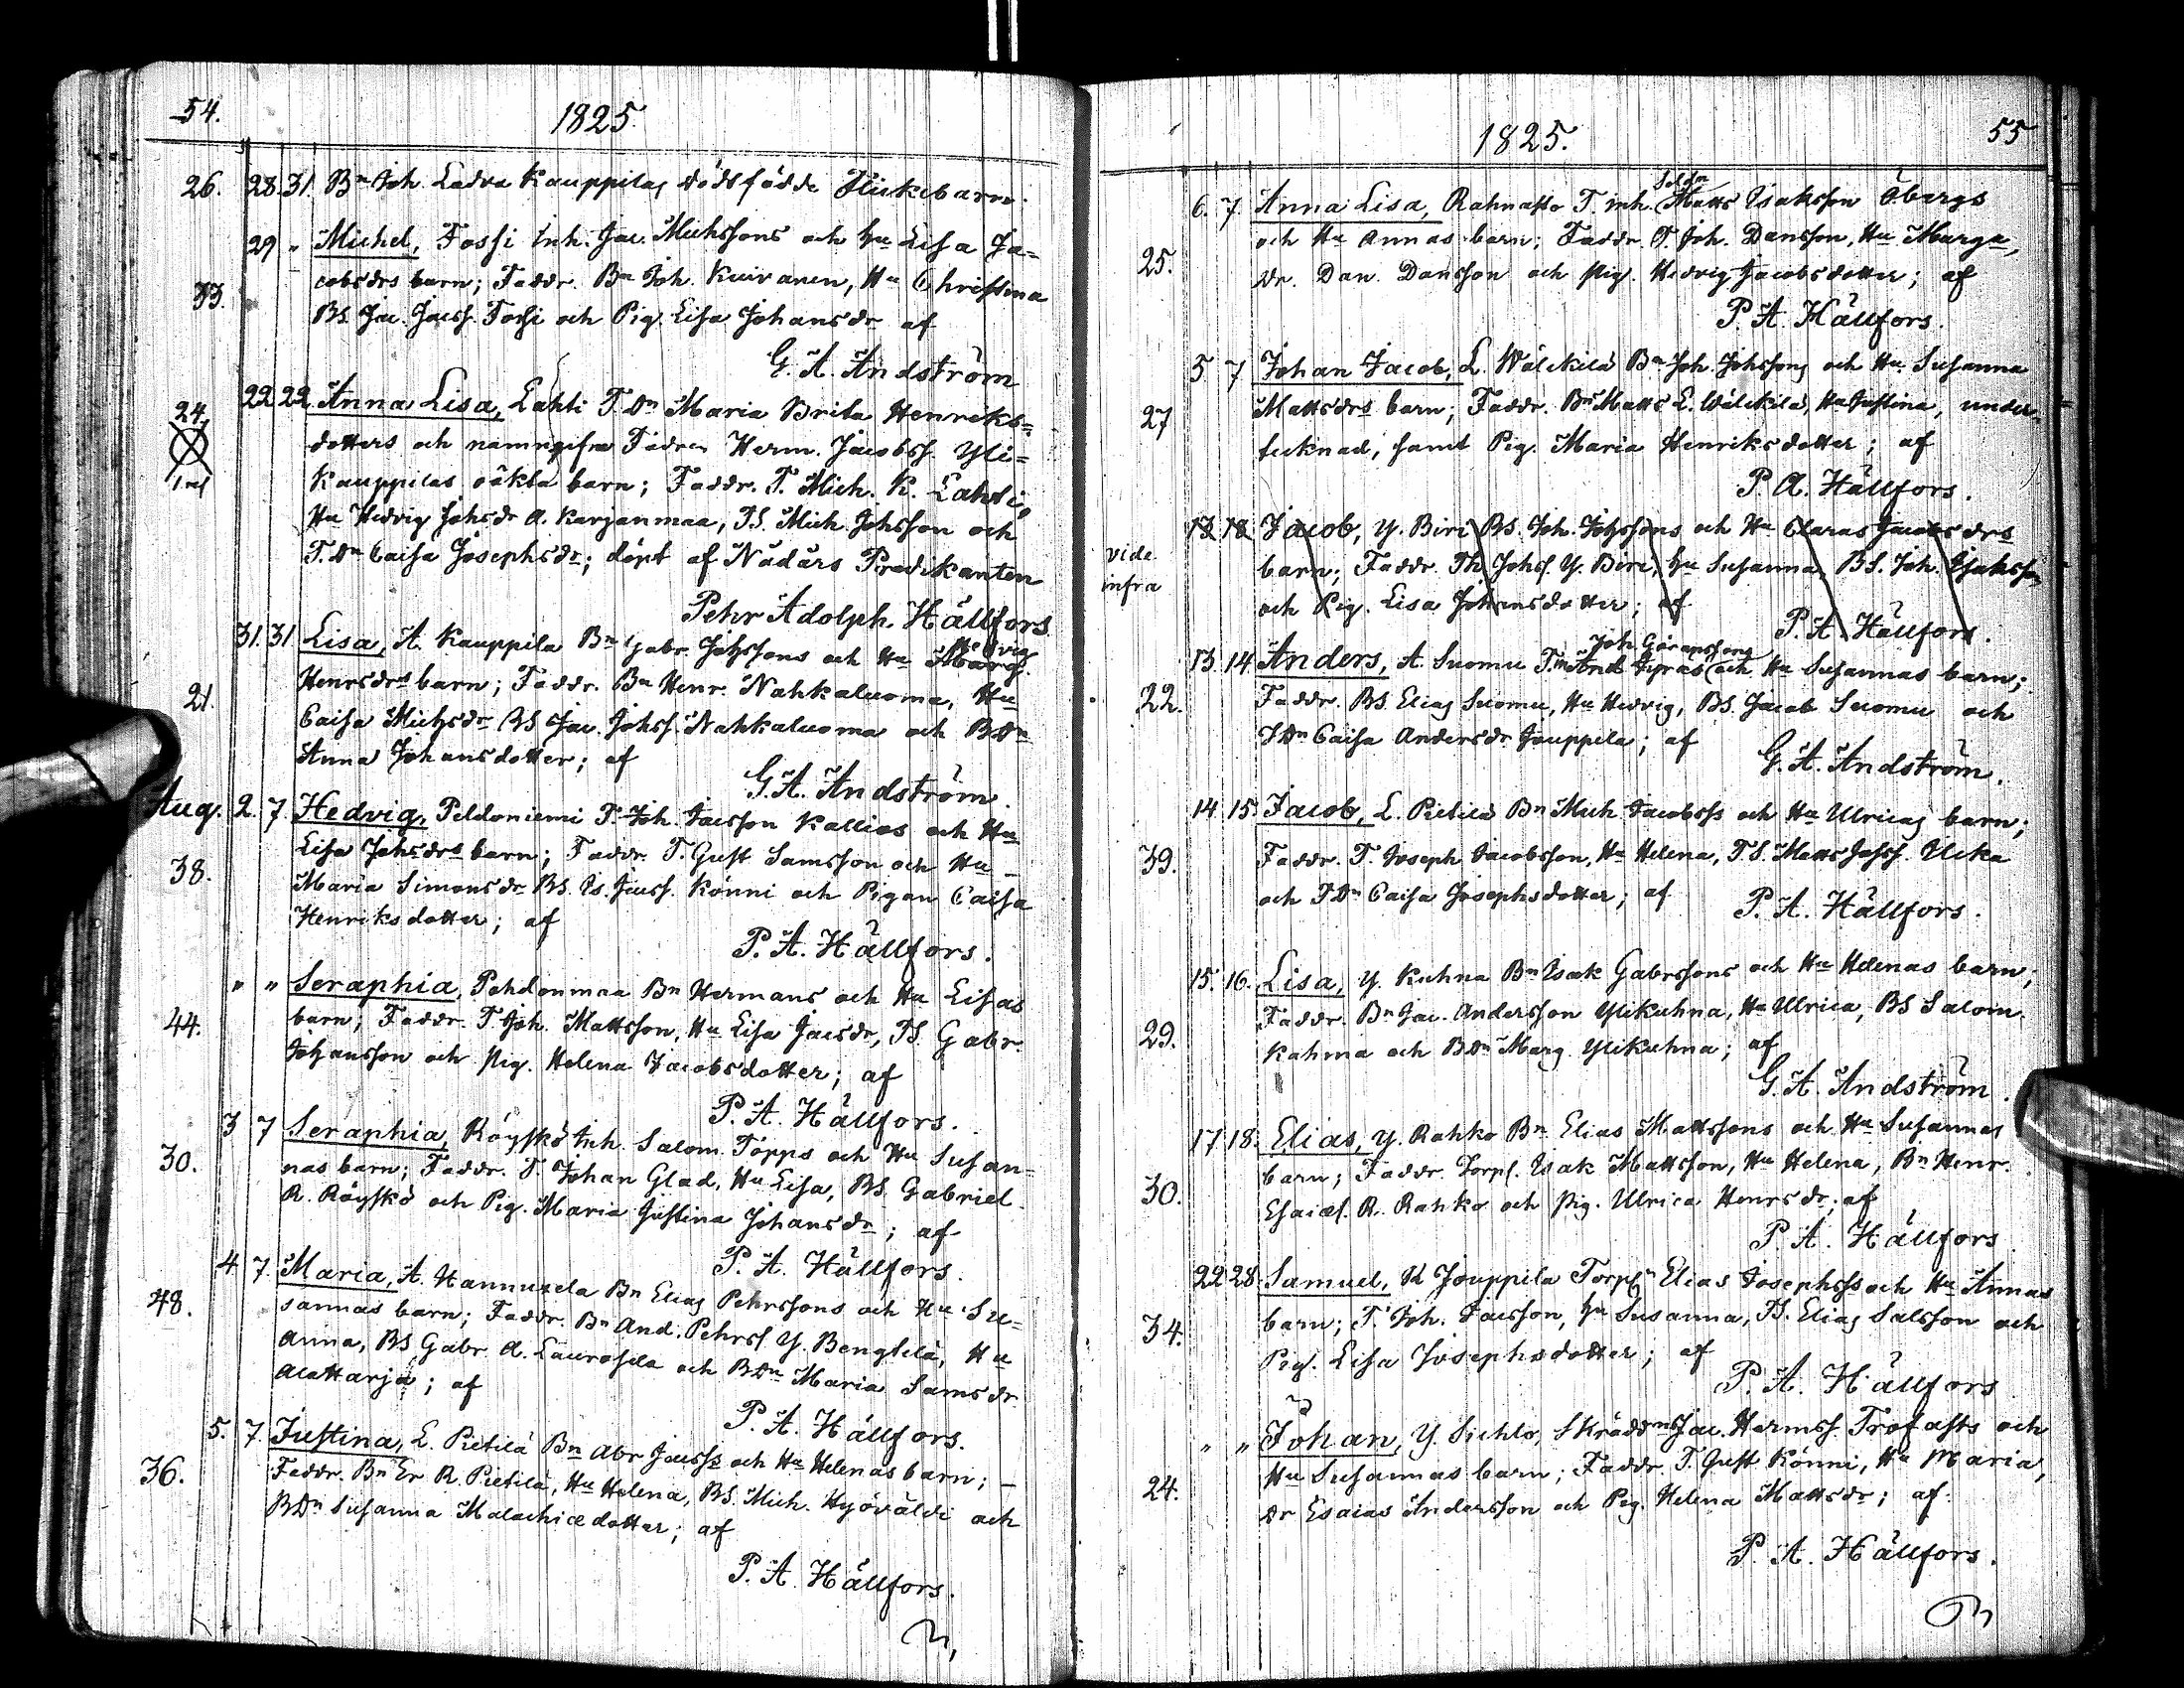 54.
1825.
26. 28. 31. Bn Joh. Ladva Kauppilas dödsfödde Flickebarn.
29 " Michel, Fossi Inh. Jac. Michssons och Hu Lisa Ja=
cobsdrs barn; Faddr. Bn Joh. Kuivanen, Hu Christina
33. BS. Jac. Jacss. Fossi och Pig. Lisa Johansdr af
G. A. Andström
24. 22 22. Anna Lisa, Lahti T.Dn Maria Brita Henriks=
dotters och namngifne Fadren Herm. Jacobss. Yli=
Kauppilas oäkta barn; Faddr. T. Mich. K. Lahti,
Hu Hedvig Johsdr A. Karjanmaa, TS. Mich. Johsson och
T.Dn Caisa Josephsdr; döpt af Nådårs Predikanten
Pehr Adolph Hällfors
31. 31 Lisa, A. Kauppila Bn Gabr. Johssons och Hu Marg. Hedvig
Henrsdrs barn; Faddr. Bn Henr. Nahkaluoma, Hu
21. Caisa Michsdr BS Jac. Johss. Nahkaluoma och BDn
Anna Johansdotter; af
G. A. Andström.
Aug. 2. 7. Hedvig, Peldoniemi T. Joh. Jacsson Kallios och Hu
Lisa Johsdrs barn; Faddr. T. Gust. Samsson och Hu
38. Maria Simonsdr BS. Is. Jacss. Könni och Pigan Caisa
Henriksdotter; af
P. A. Hällfors.
" " Seraphia, Pohdonmaa Bn Hermans och Hu Lisas
44. barn; Faddr. T. Joh. Mattsson, Hu Lisa Jacsdr, TS. Gabr.
Johansson och Pig. Helena Jacobsdotter; af
P. A. Hällfors.
3 7 Seraphia, Röyskö Inh. Salom. Töpps och Hu Susan=
30. nas barn; Faddr. T. Johan Glad, Hu Lisa, BS. Gabriel
R. Röyskö och Pig. Maria Justina Johansdr; af
P. A. Hällfors.
4 7. Maria, A. Hannuxela Bn Elias Pehrssons och Hu Su=
48. sannas barn; Faddr. Bn And. Pehrss Y. Bengtilä, Hu
Anna, BS Gabr. A. Laurosela och BDn Maria Samsdr
Alattarja; af
P. A. Hällfors.
5. 7. Justina, L. Pietilä Bn Abr Jacss och Hu Helenas barn;
36. Faddr. Bn Er. R. Pietilä, Hu Helena, BS. Mich. Hyöväldi och
BDn Susanna Malachiædotter; af
P. A. Hällfors.
1825.
55
6. 7. Anna Lisa, Rahnasto T. inh. Soldn Matts Isaksson Öbergs
25. och Hu Annas barn; Faddr. T. Joh. Dansson, Hu Marga,
Dr. Dan. Dansson och Pig. Hedvig Jacobsdotter; af
P. A. Hällfors.
5. 7 Johan Jacob, L. Wälckilä Bn Joh. Johssons och Hu Susanna
27 Mattsdrs barn; Faddr. Bn Matts L. Wälckilä, Hu Justina, under=
tecknad, samt Pig. Maria Henriksdotter; af
P. A. Hällfors.
vide infra 13 18 Jacob, Y. Biri BS. Joh. Johssons och Hu Claras Jacobsdrs
barn; Faddr. Th. Johs. Y. Biri, Hu Susanna, BS. Joh. Isaksson
och Pig. Lisa Johansdotter; af
P. A. Hällfors.
13. 14. Anders, A. Suomu T.m And. Fyras Joh. Göranssons och Hu Susannas barn;
22. Faddr. BS. Elias Suomu, Hu Hedvig, BS. Jacob Suomu och
TDn Caisa Andersdr Jouppila; af
G. A. Andström.
14. 15. Jacob, L. Pietilä Bn Mich. Jacobss och Hu Ulricas barn;
39. Faddr. T. Joseph Jacobsson, Hu Helena, TS. Matts Johss. Ucka
och TDn Caisa Josephsdotter; af
P. A. Hällfors.
15. 16. Lisa, Y. Kuhna Bn Isak Gabrssons och Hu Helenas barn;
29. Faddr. Bn Jac. Andersson Ylikuhna, Hu Ulrica, BS Salom.
Kahma och BDn Marg. Ylikuhna; af
G. A. Andström.
17. 18. Elias, Y. Rahko Bn Elias Mattssons och Hu Susannas
30. barn; Faddr. Torps. Isak Mattsson, Hu Helena, Bn Henr.
Esaiæs. R. Rahko och Pig. Ulrica Henrsdr; af
P. A. Hällfors
22 28. Samuel, K Jouppila Torpn Elias Josephss och Hu Annas
34. barn; T. Joh. Jacsson, Hu Susanna, TS. Elias Salsson och
Pig. Lisa Josephsdotter; af
P. A. Hällfors
" " Johan, Y. Sichlo, Skräddns Jac. Hermss. Trofasts och
24. Hu Susannas barn; Faddr. T. Gust Könni, Hu Maria,
Dr Esaias Andersson och Pig. Helena Mattsdr; af
P. A. Hällfors.